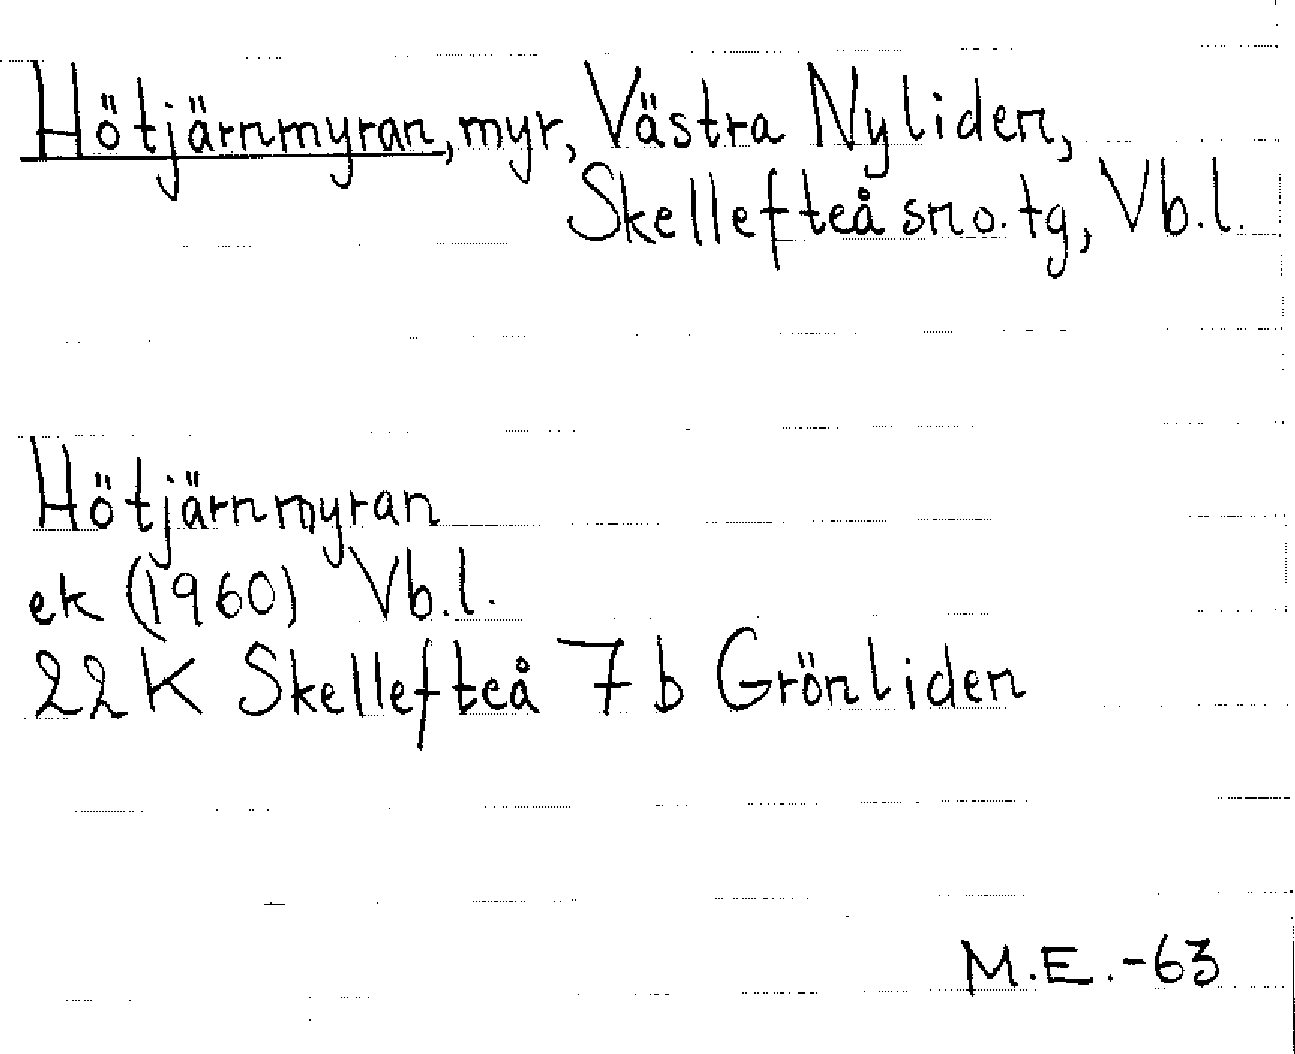 Hötjärnmyran, myr, Västra Nyliden,
Skellefteå sno. tg, Vb.l.
Hötjärnmyran
ek (1960) Vb.l.
22 K Skellefteå 7 b Grönliden
M.E.-63